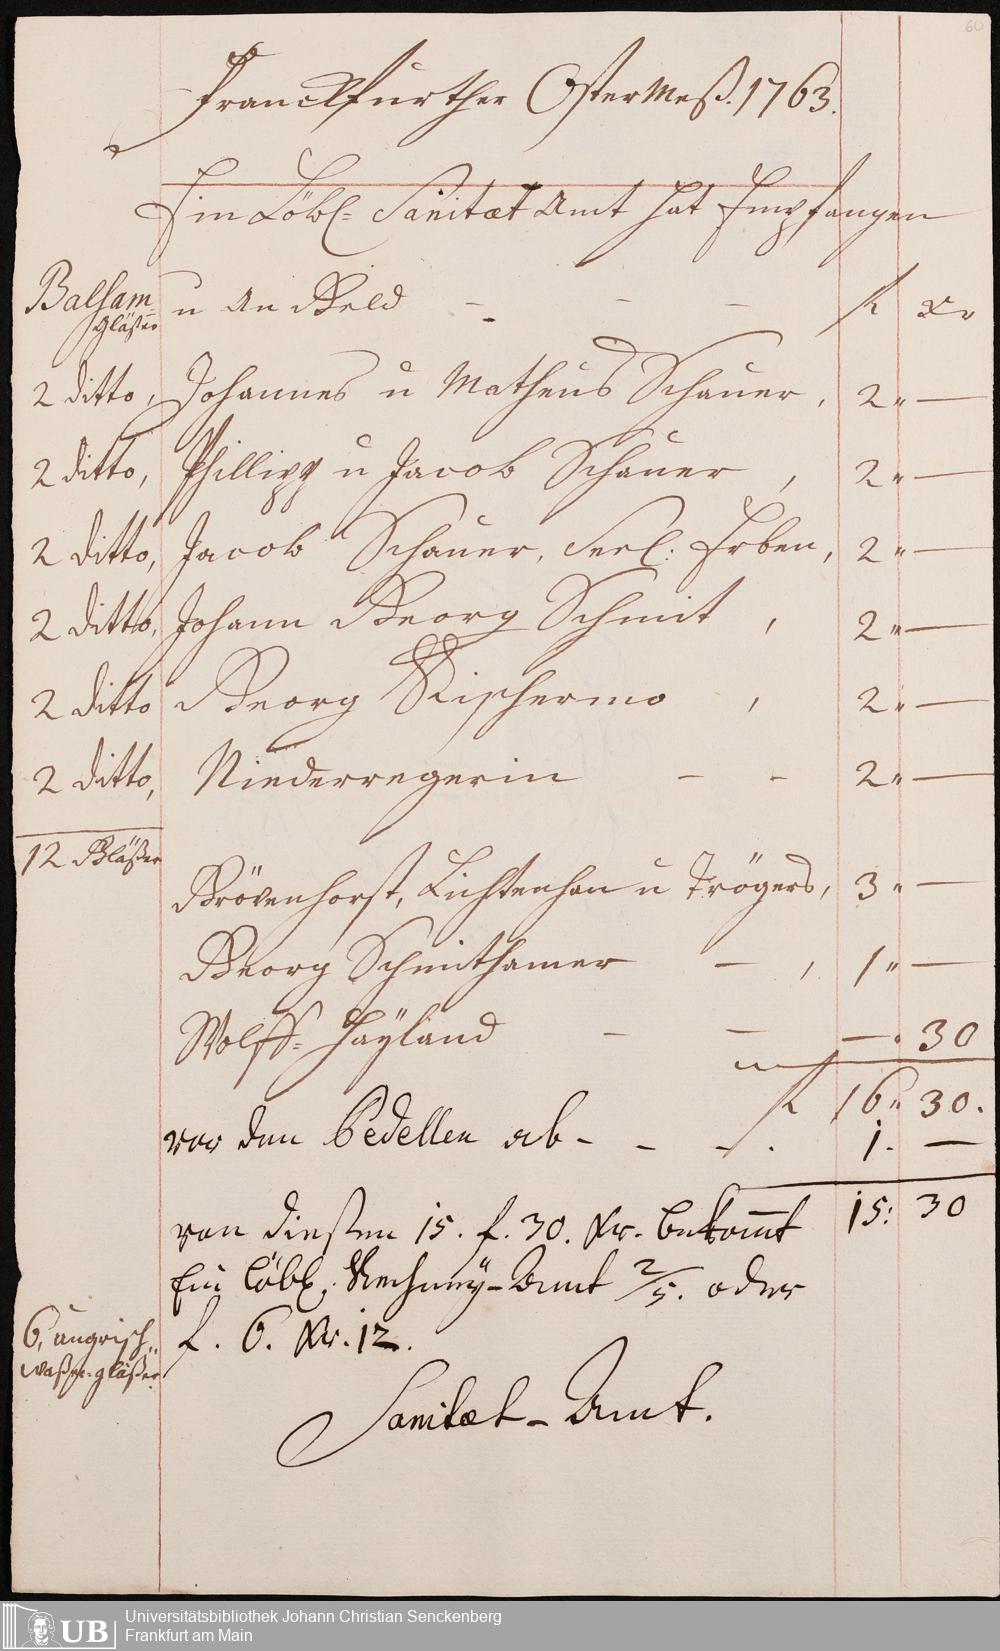 60
Franckfurther Oster Meß. 1763.
Ein Löbl= Sanitæt Amt hat Empfangen
Balsam u an Geld - - - fl xr
Gläßer
2 ditto, Johannes u Matheus Schauer, 2„ —
2 ditto, Phillipp u Jacob Schauer, 2„ —
2 ditto, Jacob Schauer, Seel: Erben, 2„ —
2 ditto, Johann Georg Schmit, 2„ —
2 ditto Georg, 2„ —
2 ditto, Niederregerin - - 2„ —
12 Gläßer
Grövenhorst, Lichtenhan u Trögers, 3„ —
Georg Schmithamer —, 1„ —
Wolff= Hayland — — —. 30
fl 16„ 30.
vor den Pedellen ab - - -. 1. —
15: 30
von dießen 15. f. 30. Xr. bekom̄t
Ein löbl. Rechney-Amt 2/5. oder
6, ungrisch„ f. 6. Xr. 12.
waßer-gläßer.
Sanitæt-Amt.
UB Universitätsbibliothek Johann Christian Senckenberg
Frankfurt am Main